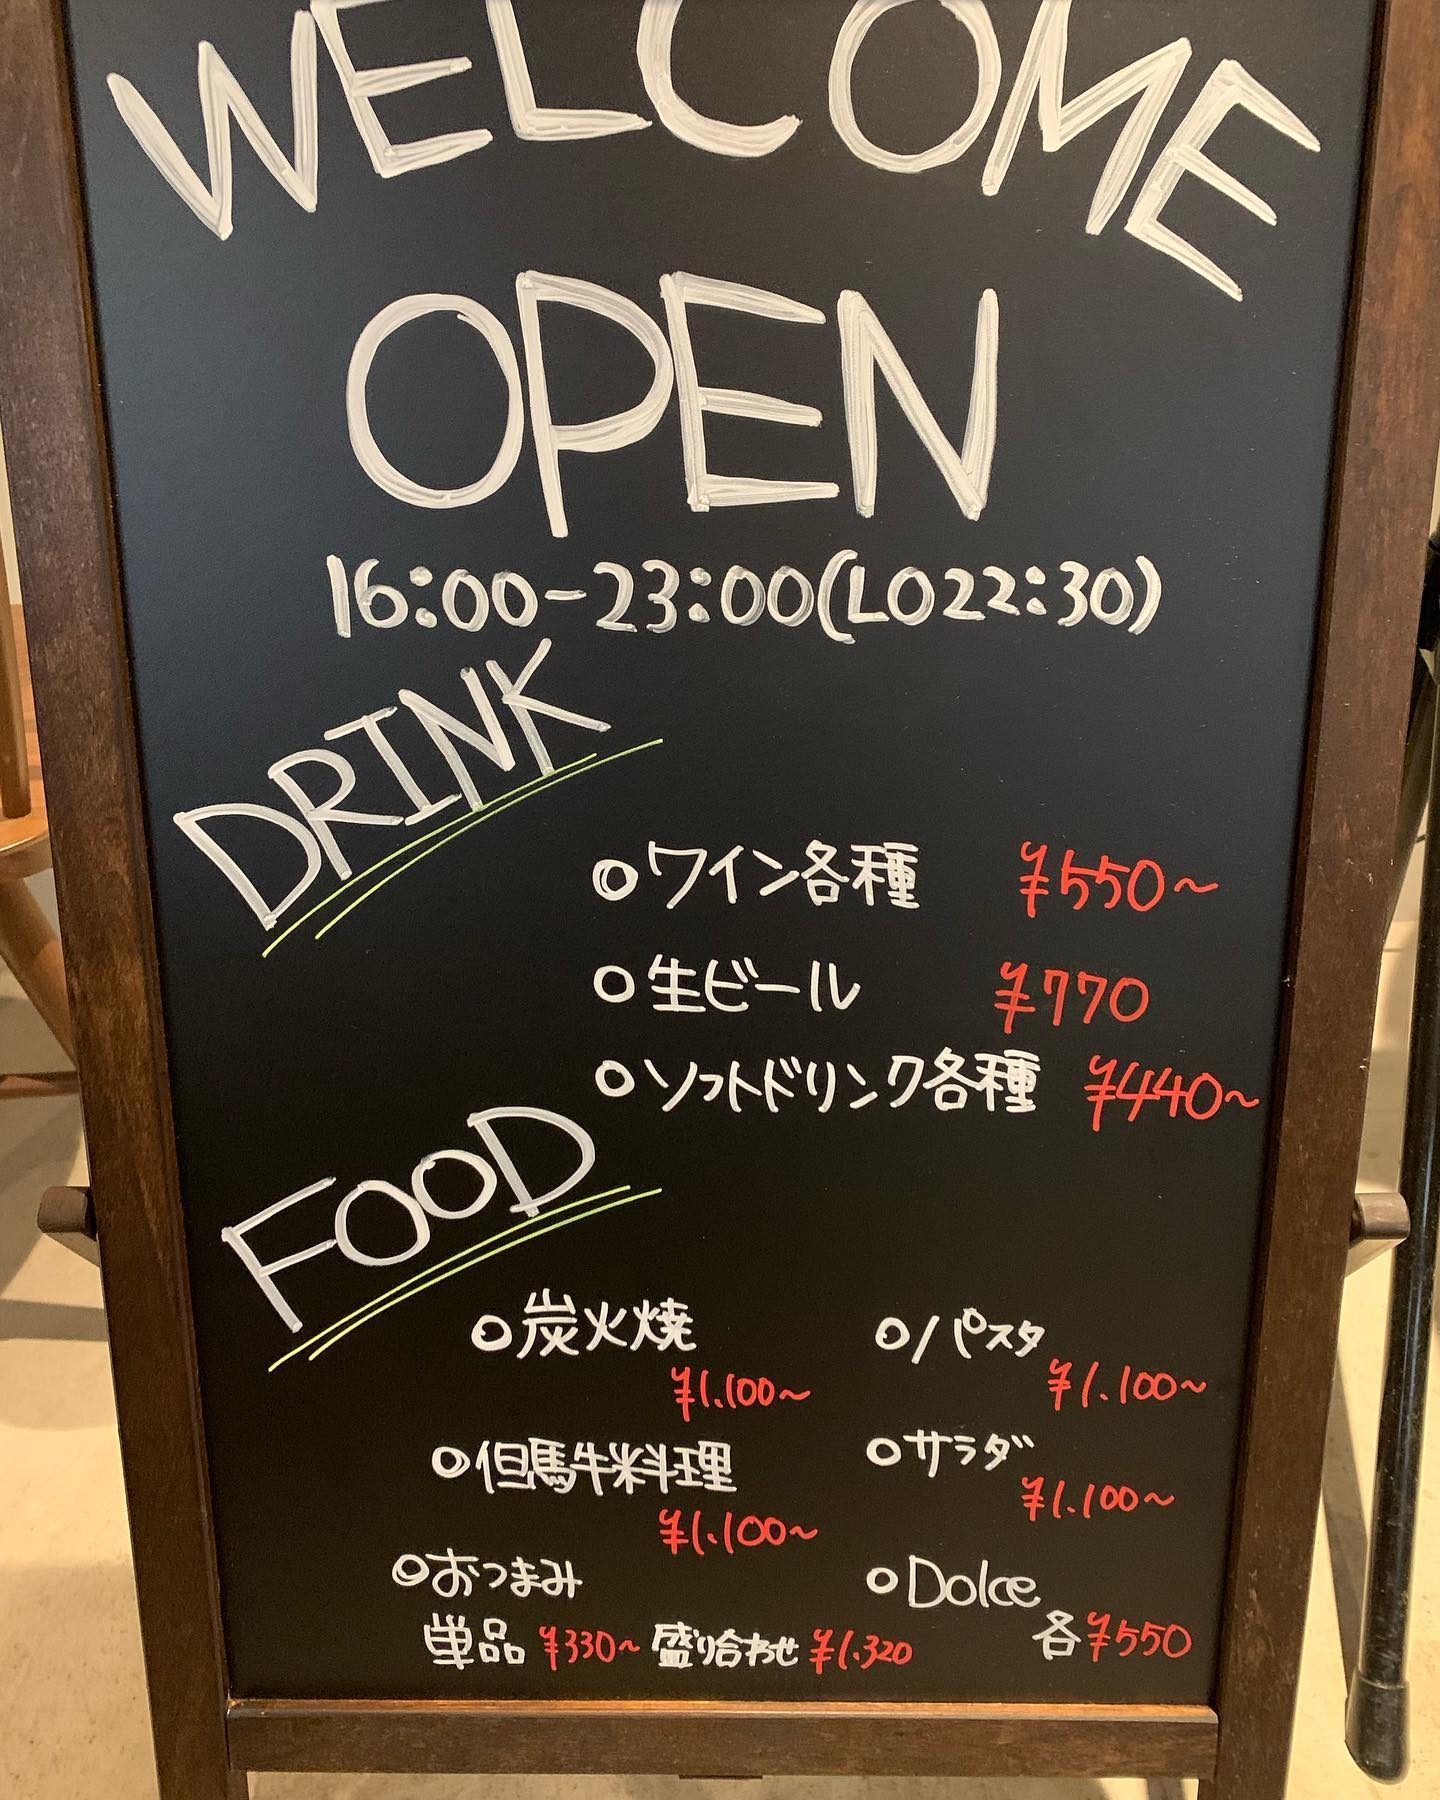 WELCOME
OPEN
16:00-23:00(LO22:30)
DRINK
○ワイン各種 ¥550~
○生ビール ¥770
○ソフトドリンク各種 ¥440~
FOOD
○炭火焼
¥1.100~
○パスタ
¥1.100~
○但馬牛料理
¥1.100~
○サラダ
¥1.100~
○おつまみ
単品 ¥330~ 盛り合わせ ¥1.320
○Dolce
各¥550